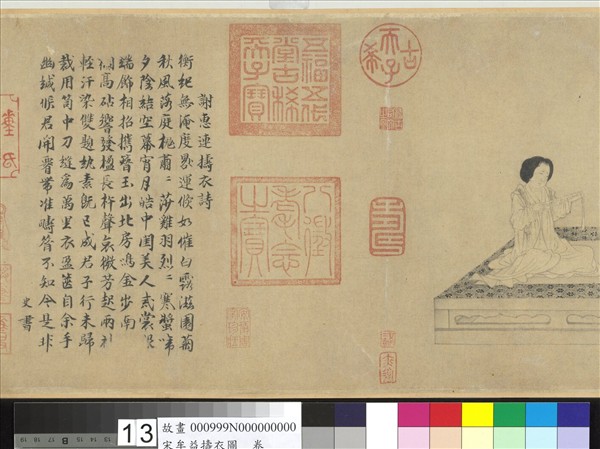 謝惠連擣衣詩
衡紀無淹度晷運倏如催白露滋園菊
秋風落庭槐肅二莎雞羽烈二寒螿啼
夕陰結空幕宵月皓中閨美人戒裳服
端飾相招攜簪玉出北房鳴金步南
高砧響發楹長杵聲哀微芳起兩
輕汗染雙題紈素既已成君子行未歸
裁用笥中刀縫為萬里衣盈篋自余手
幽緘俟君開腰帶准疇昔不知今是非
史書
五福五代堂古稀天子寶
八徵耄念之寶
古希天子
13
故畫 000999N000000000
宋牟益擣衣圖 卷
B